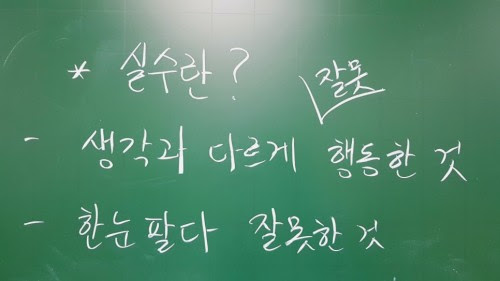 * 실수란?
잘못
- 생각과 다르게 행동한 것
- 한눈팔다 잘못한 것